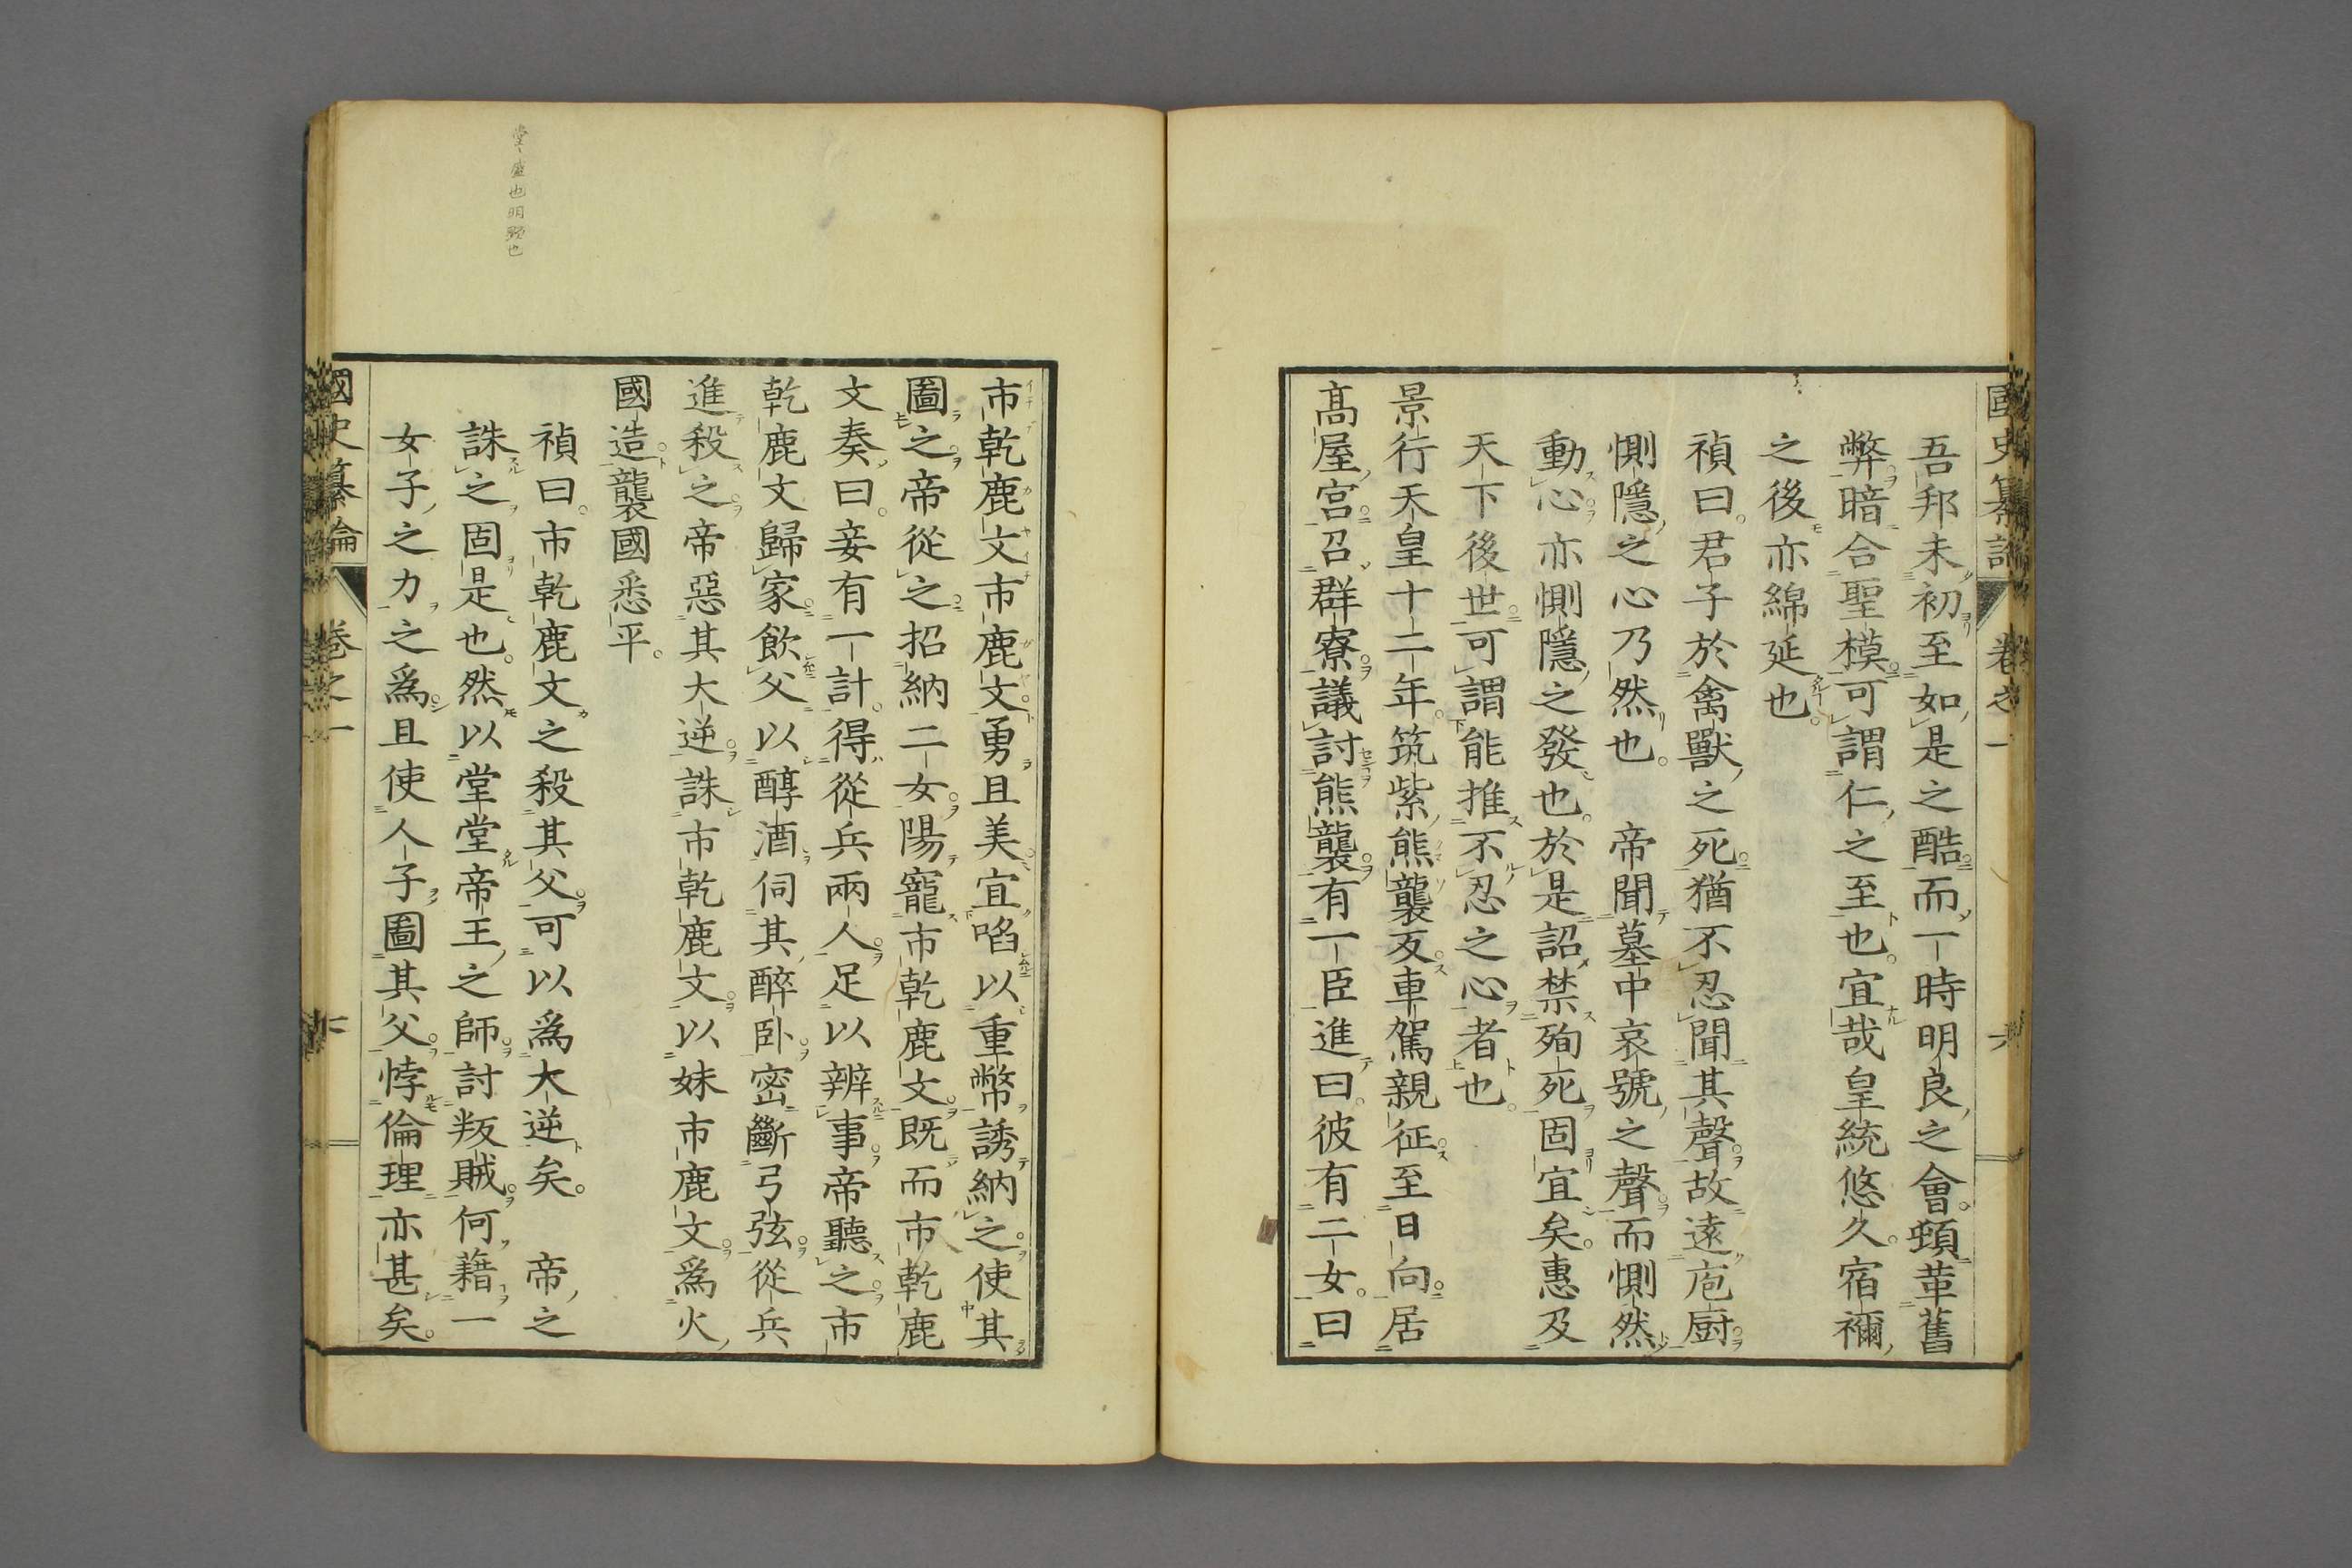 國史纂論 卷之一 六
吾邦未初至如是之酷而一時明良之會頓革舊
弊暗合聖模可謂仁之至也宜哉皇統悠久宿禰
之後亦綿延也
禎曰君子於禽獸之死猶不忍聞其聲故遠庖厨
惻隱之心乃然也 帝聞墓中哀號之聲而惻然
動心亦惻隱之發也於是詔禁殉死固宜矣惠及
天下後世可謂能推不忍之心者也
景行天皇十二年筑紫熊襲反車駕親征至日向居
髙屋宮召群寮議討熊襲有一臣進曰彼有二女曰
市乾鹿文市鹿文勇且美宜啗以重幣誘納之使其
圖之帝從之招納二女陽寵市乾鹿文既而市乾鹿
文奏曰妾有一計得從兵兩人足以辨事帝聽之市
乾鹿文歸家飲父以醇酒伺其醉卧密斷弓弦從兵
進殺之帝惡其大逆誅市乾鹿文以妹市鹿文爲火
國造襲國悉平
禎曰市乾鹿文之殺其父可以爲大逆矣 帝之
誅之固是也然以堂堂帝王之師討叛賊何藉一
女子之力之爲且使人子圖其父悖倫理亦甚矣
國史纂論 卷之一 七
堂盛也明